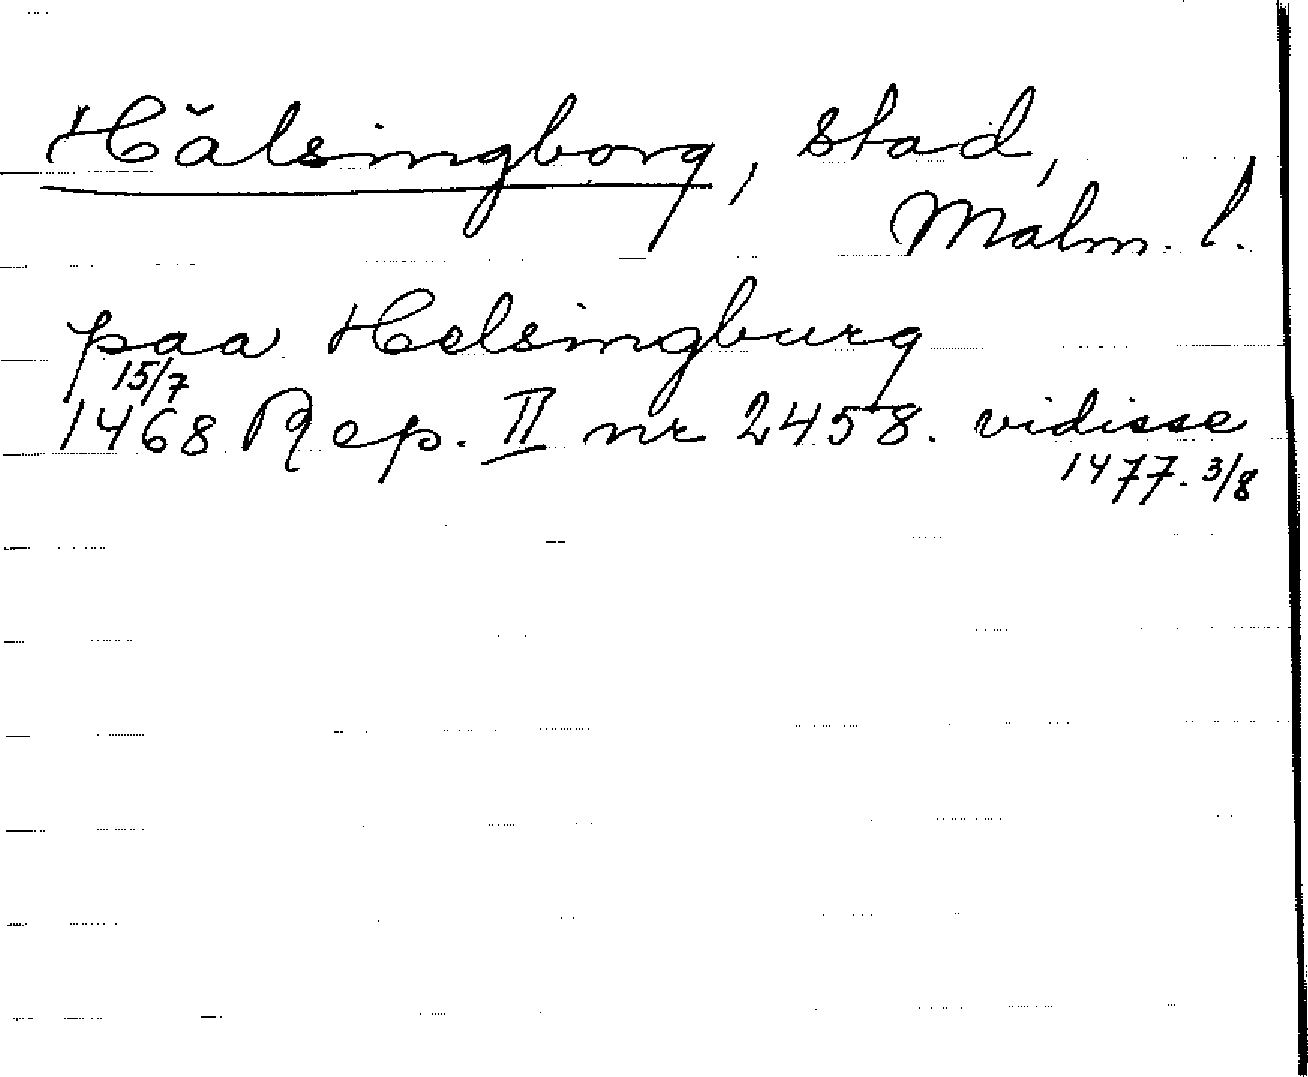 Hälsingborg, stad,
Malm. l.
paa Helsingburg
15/7
1468 Rep. II nr 2458. vidisse
1477. 3/8